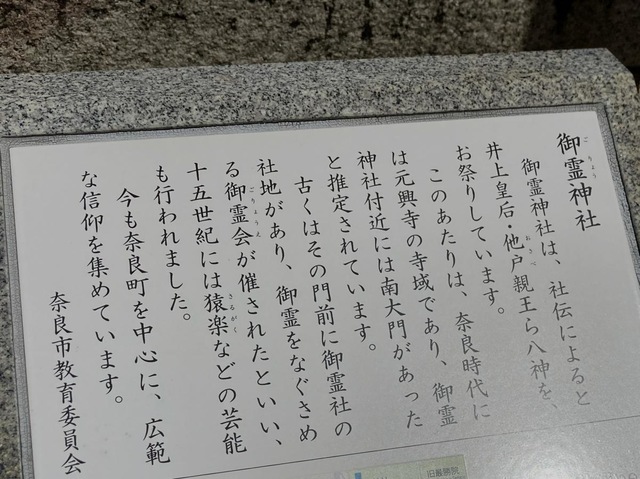 御霊神社
御霊神社は、社伝によると
井上皇后・他戸親王ら八神を、
お祭りしています。
このあたりは、奈良時代に
は元興寺の寺域であり、御霊
神社付近には南大門があった
と推定されています。
古くはその門前に御霊社の
社地があり、御霊をなぐさめ
る御霊会が催されたといい、
十五世紀には猿楽などの芸能
も行われました。
今も奈良町を中心に、広範
な信仰を集めています。
奈良市教育委員会
旧最勝院